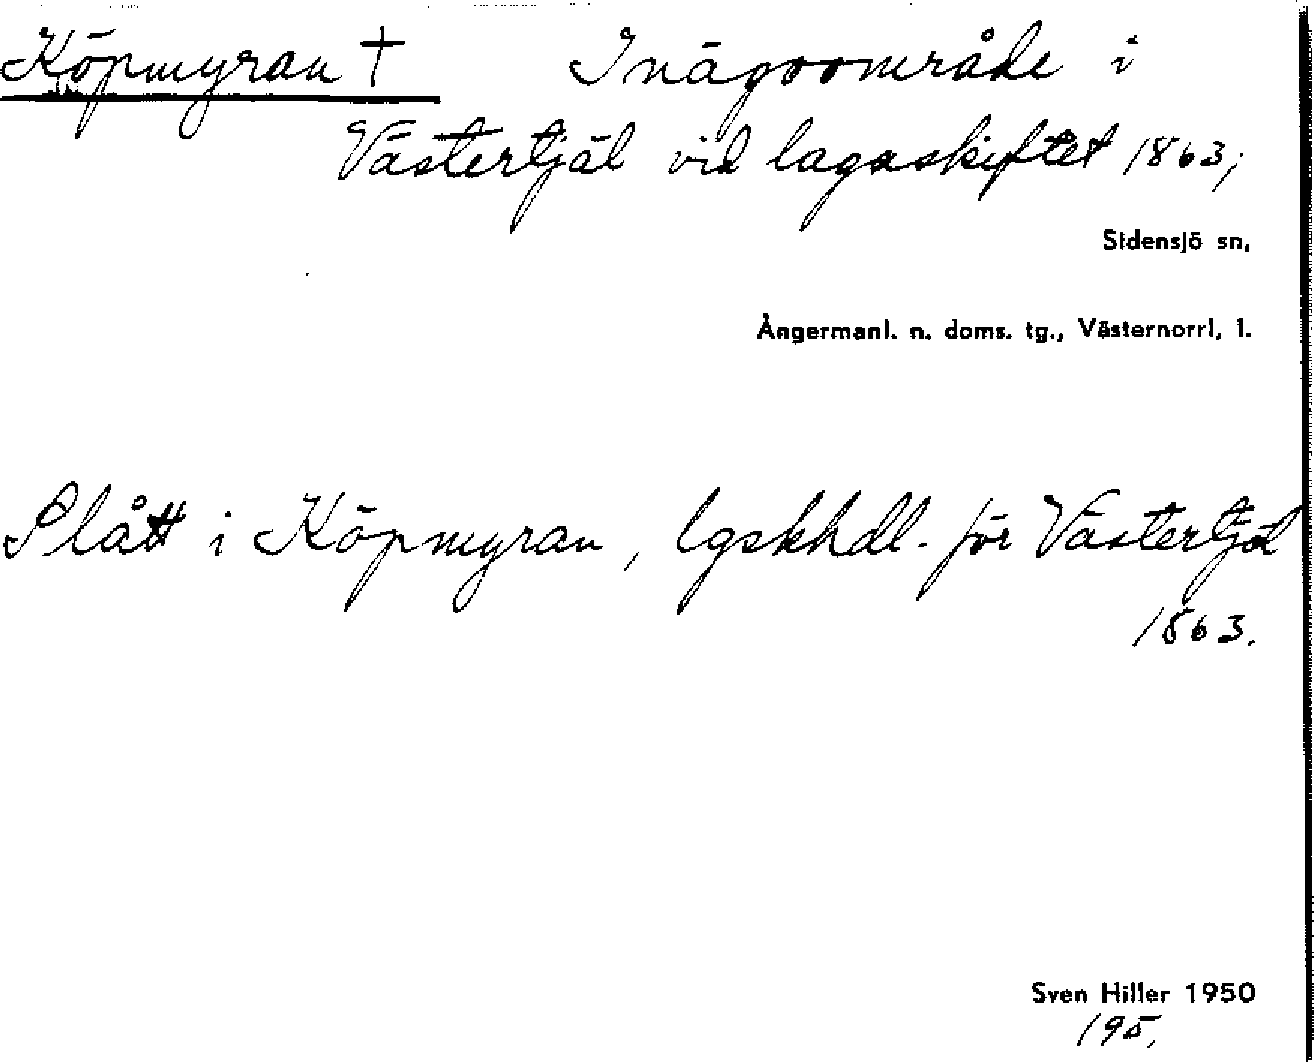 Köpmyran † Inägoområde i
Västertjäl vid lagaskiftet 1863;
Sidensjö sn.
Ångermanl. n. doms. tg., Västernorrl. l.
Slått i Köpmyran, lgskhdl. för Västertjäl
1863.
Sven Hiller 1950
195,